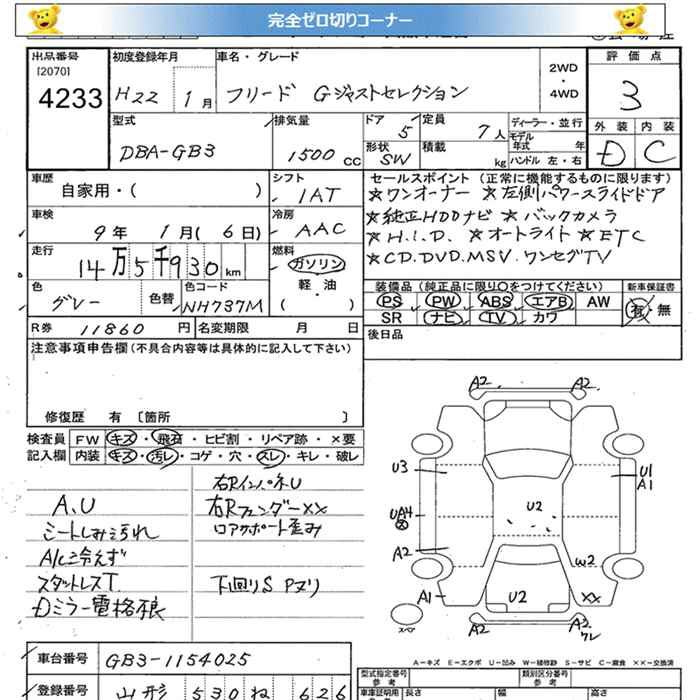 完全ゼロ切りコーナー
出品番号 初度登録年月 車名・グレード 2WD・4WD 評価点
[2070]
4233 H22 1月 フリード Gジャストセレクション 3
型式 排気量 ドア 5 定員 7人 ディーラー・並行 外装 内装
DBA-GB3 1500cc 形状 SW 積載 kg モデル年式 年 D C
ハンドル 左・右
車歴 シフト セールスポイント (正常に機能するものに限ります)
自家用・( ) IAT ☆ワンオーナー ☆左側パワースライドドア
車検 冷房 ☆純正HDDナビ ☆バックカメラ
9年 1月(6日) AAC ☆H.I.D. ☆オートライト ☆ETC
走行 燃料 ☆CD.DVD.MSV.ワンセグTV
14万5千930km ガソリン
軽・油
( )
装備品(純正品に限り○をつけてください) 新車保証書
色 色替 色コード PS PW ABS エアB AW 有・無
グレー NH737M SR ナビ TV カワ
R券 11860円 名変期限 月 日 後日品
注意事項申告欄(不具合内容等は具体的に記入して下さい)
修復歴 有 [箇所 ]
検査員 FW キズ・飛石・ヒビ割・リペア跡・×要
記入欄 内装 キズ・汚レ・コゲ・穴・スレ・キレ・破レ
A.U
シートしみ汚れ
A/C冷えず
スタットレスT.
Dミラー電格不良
右RインパネU
右Rフェンダー××
ロアサポート歪み
下回りS Pヌリ
A2 A2
U3 U1
A1
UA4 U2
A2 W2
A1 U2 ××
スペア A2 A2
ワレ
A-キズ E-エクボ U-凹み W-補修跡 S-サビ C-腐食 ××-交換済
車台番号 GB3-1154025 型式指定番号 類別区分番号
参考 参考
登録番号 山形 530 ね 626 車庫証明用 長さ 幅 高さ